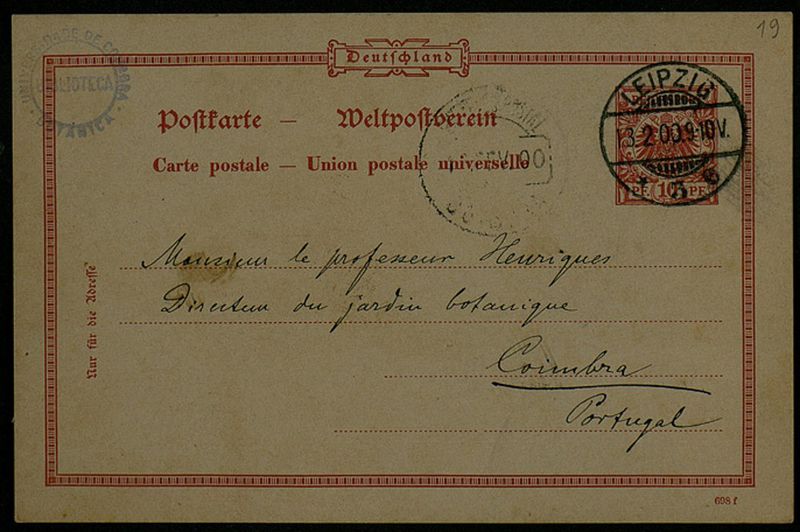 19
UNIVERSIDADE DE COIMBRA
BIBLIOTECA
BOTANICA
Deutschland
LEIPZIG
13 2 00 9-10V.
* 3 c
PF. 10 PF.
Postkarte — Weltpostverein
Carte postale — Union postale universelle
Monsieur le professeur Henriques
Directeur du jardin botanique
Coimbra
Portugal
Nur für die Adresse
698 f